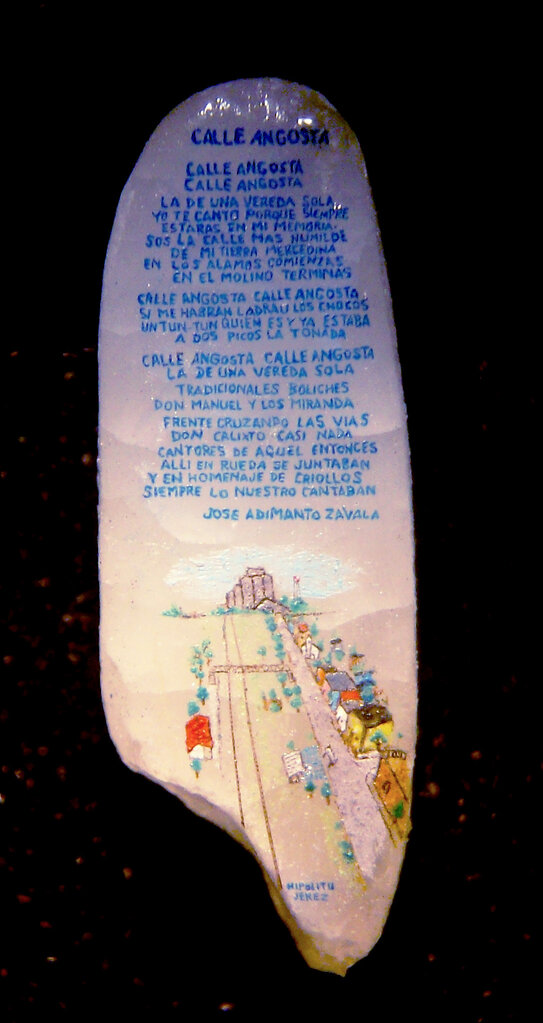 CALLE ANGOSTA
CALLE ANGOSTA
CALLE ANGOSTA
LA DE UNA VEREDA SOLA
YO TE CANTO PORQUE SIEMPRE
ESTARAS EN MI MEMORIA.
SOS LA CALLE MAS HUMILDE
DE MI TIERRA MERCEDINA
EN LOS ALAMOS COMIENZAS
EN EL MOLINO TERMINAS
CALLE ANGOSTA CALLE ANGOSTA
SI ME HABRAN LADRAU LOS CHOCOS
UN TUN TUN QUIEN ES Y YA ESTABA
A DOS PICOS LA TONADA
CALLE ANGOSTA CALLE ANGOSTA
LA DE UNA VEREDA SOLA
TRADICIONALES BOLICHES
DON MANUEL Y LOS MIRANDA
FRENTE CRUZANDO LAS VIAS
DON CALIXTO CASI NADA
CANTORES DE AQUEL ENTONCES
ALLI EN RUEDA SE JUNTABAN
Y EN HOMENAJE DE CRIOLLOS
SIEMPRE LO NUESTRO CANTABAN
JOSE ADIMANTO ZAVALA
HIPOLITO
JEREZ